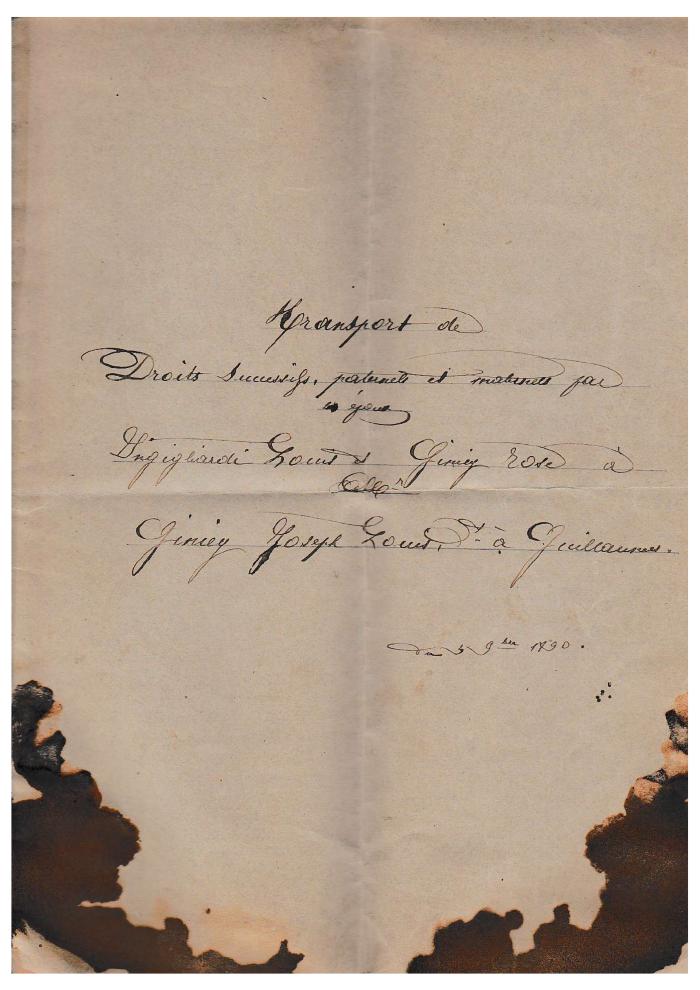 Transport de
Droits Successifs, paternels et maternels par
époux
Louis et Giniey rose à
Giniey Joseph Louis, dt à Guillaumes.
du 5 9bre 1890.